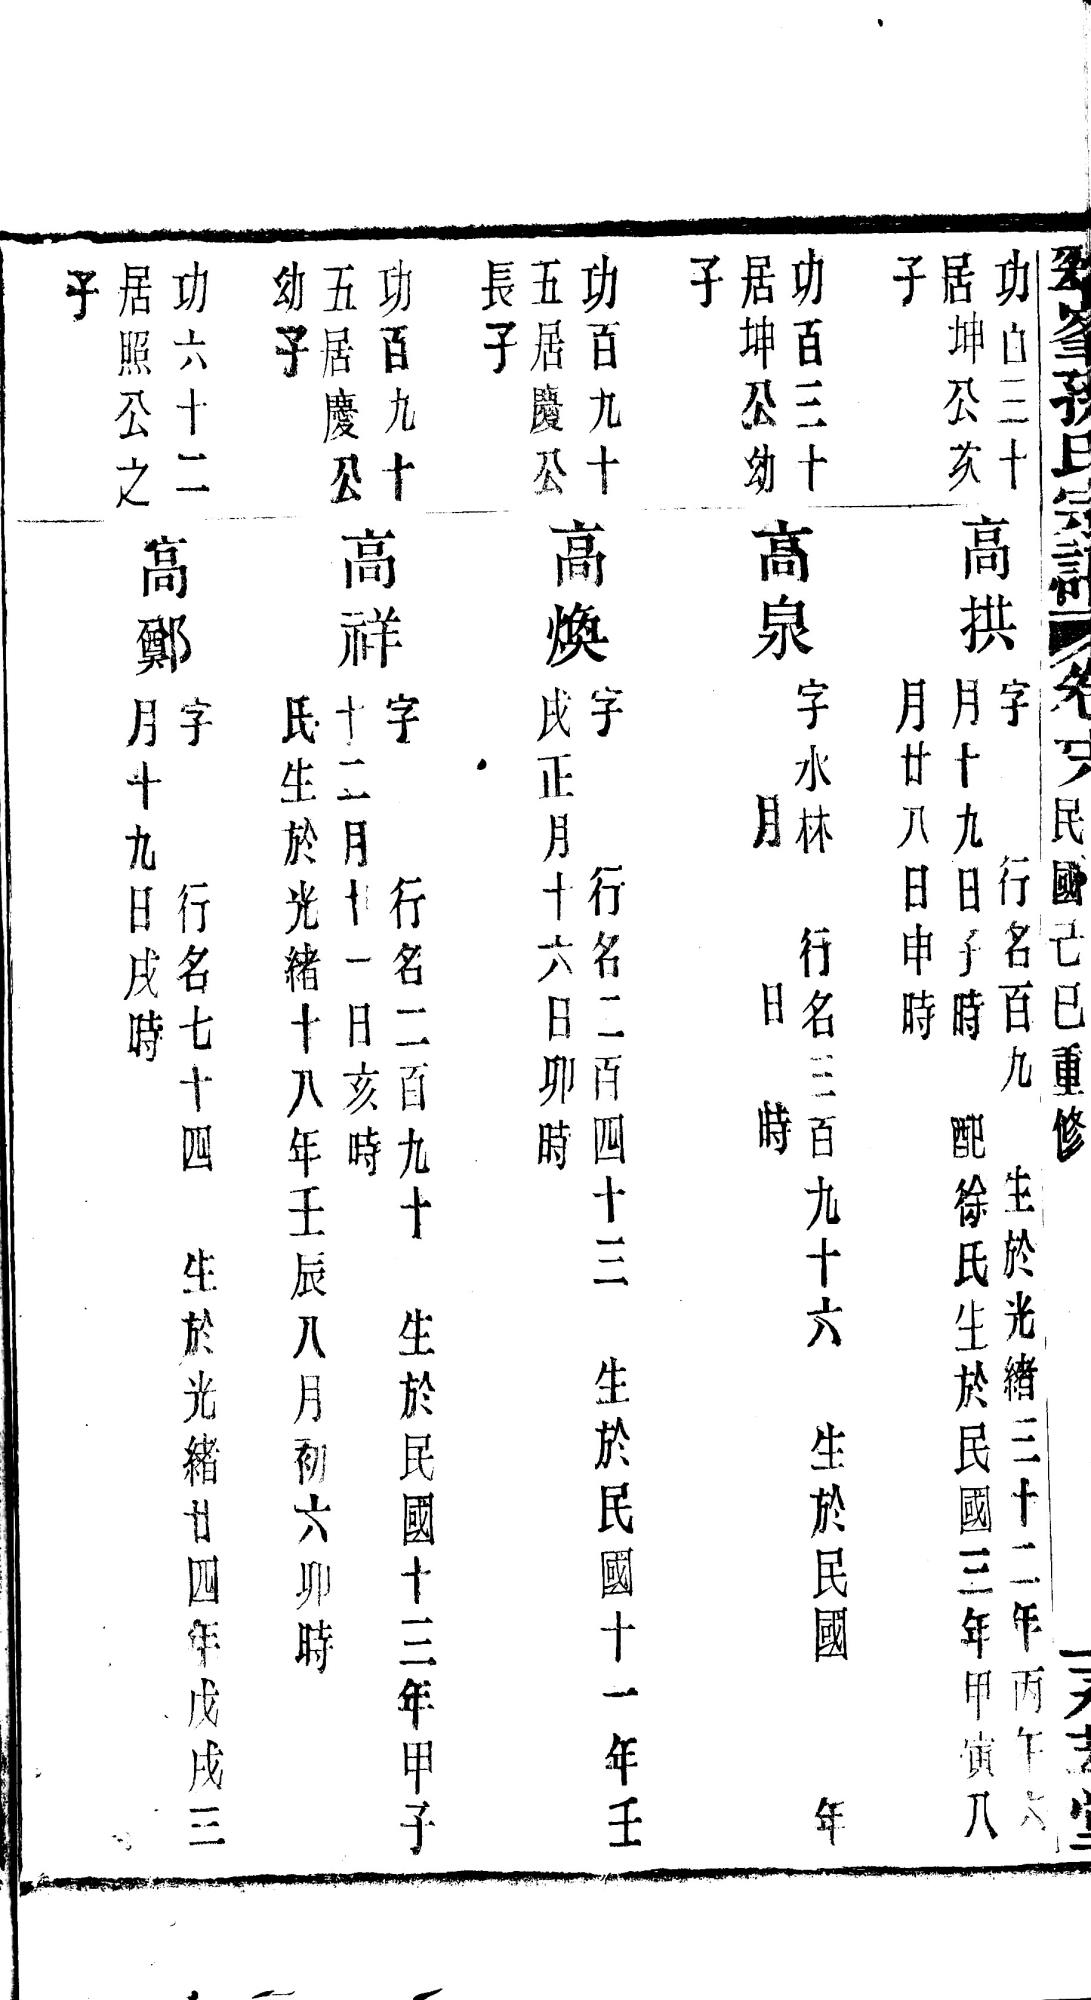 孫氏宗譜
卷
民國己巳重修
堂
功百三十
居坤公亥
子
高拱
字 行名百九 生於光緒三十二年丙午六
月十九日子時 配徐氏生於民國三年甲寅八
月廿八日申時
功百三十
居坤公幼
子
高泉
字水林 行名三百九十六 生於民國 年
月 日 時
功百九十
五居慶公
長子
高煥
字 行名二百四十三 生於民國十一年壬
戌正月十六日卯時
功百九十
五居慶公
幼子
高祥
字 行名二百九十 生於民國十三年甲子
十二月十一日亥時
氏生於光緒十八年壬辰八月初六卯時
功六十二
居照公之
子
高鄭
字 行名七十四 生於光緒廿四年戊戌三
月十九日戌時